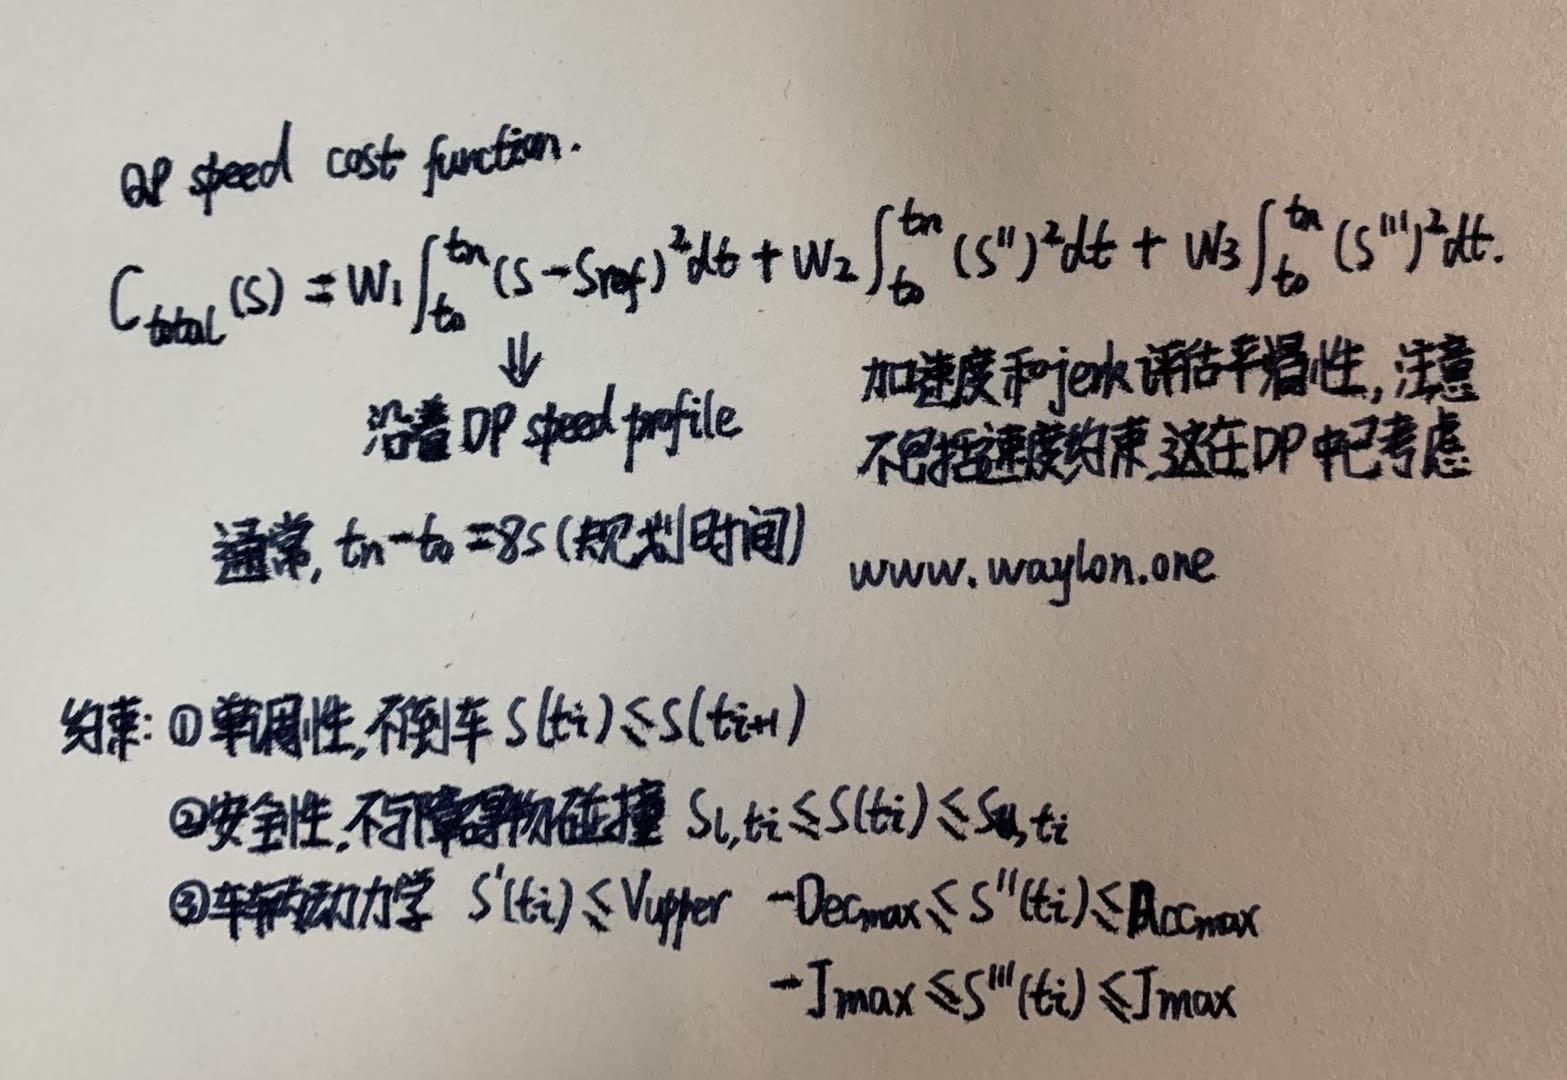 QP speed cost function.
C_total(S) = W₁∫_{t₀}^{tn}(S-Sref)²dt + W₂∫_{t₀}^{tn}(S'')²dt + W₃∫_{t₀}^{tn}(S''')²dt.
⇓
沿着DP speed profile
加速度和jerk评估平滑性,注意
不包括速度约束,这在DP中已考虑
通常, tn-t₀=8s(规划时间)
www.waylon.one
约束: ①单调性,不倒车 S(ti)≤S(ti+1)
②安全性,不与障碍物碰撞 Sl,ti≤S(ti)≤Su,ti
③车辆动力学 S'(ti)≤Vupper -Decmax≤S''(ti)≤Accmax
-Jmax≤S'''(ti)≤Jmax